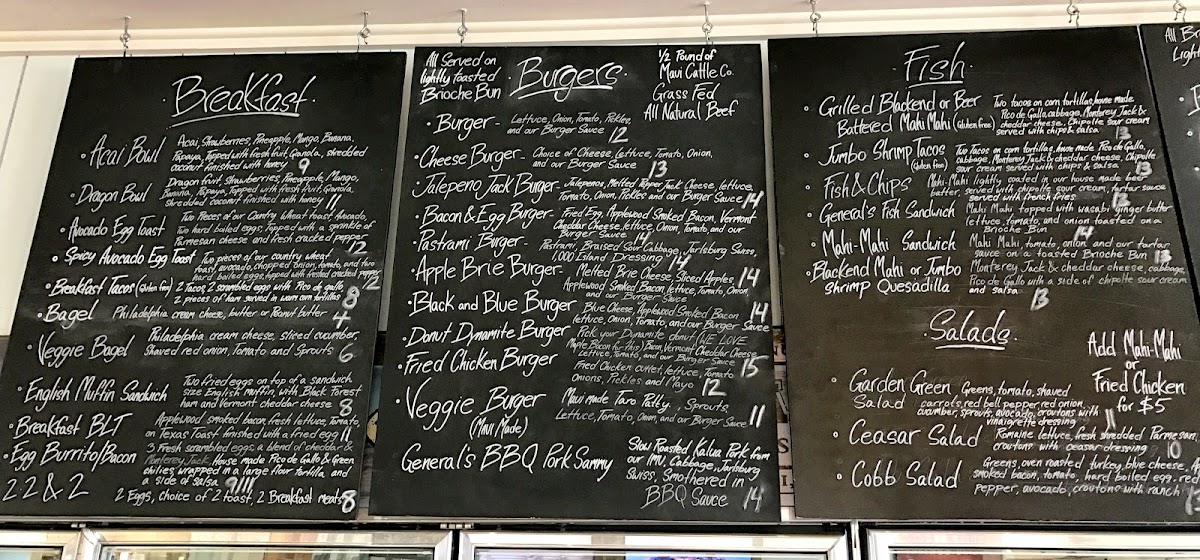 Breakfast
Acai Bowl
Acai, Strawberries, Pineapple, Mango, Banana,
Papaya, Topped with fresh fruit, Granola, shredded
coconut finished with honey 9
Dragon Bowl
Dragon fruit, Strawberries, Pineapple, Mango,
Banana, Papaya, Topped with fresh fruit, Granola,
Shredded coconut finished with honey 11
Avocado Egg Toast
Two Pieces of our Country Wheat toast, Avocado,
Two hard boiled eggs, Topped with a sprinkle of
Parmesan cheese and fresh cracked pepper 12
Spicy Avocado Egg Toast
Two pieces of our country wheat
toast, avocado, chopped onion, tomato, and two
hard boiled eggs, topped with freshed cracked pepper 12
Breakfast Tacos (Gluten free)
2 Tacos, 2 scrambled eggs with Pico de gallo
2 pieces of ham served in warm corn tortillas 8
Bagel
Philadelphia cream cheese, butter or Peanut butter 4
Veggie Bagel
Philadelphia cream cheese, sliced cucumber,
Shaved red onion, Tomato and Sprouts 6
English Muffin Sandwich
Two fried eggs on top of a sandwich
size English muffin, with Black Forest
ham and Vermont cheddar cheese 8
Breakfast BLT
Applewood smoked bacon, fresh lettuce, Tomato,
on Texas Toast finished with a fried egg 11
Egg Burrito/Bacon
3 Fresh scrambled eggs a blend of cheddar &
Monterey Jack, House made Pico de Gallo & green
chilies, wrapped in a large flour tortilla, and
a side of salsa 9/11
22&2
2 Eggs, choice of 2 toast, 2 Breakfast meats 8
All Served on
lightly Toasted
Brioche Bun
Burgers
1/2 Pound of
Maui Cattle Co.
Grass Fed
All Natural Beef
Burger - Lettuce, Onion, Tomato, Pickles,
and our Burger Sauce 12
Cheese Burger - Choice of Cheese, Lettuce, Tomato, Onion,
and our Burger Sauce 13
Jalepeno Jack Burger - Jalepenos, Melted Pepper Jack Cheese, lettuce,
Tomato, Onion, Pickles and our Burger Sauce 14
Bacon & Egg Burger - Fried Egg, Applewood Smoked Bacon, Vermont
Cheddar Cheese, lettuce, Onion, Tomato, and our
Burger Sauce 14
Pastrami Burger - Pastrami, Braised Sour Cabbage, Jarlsburg Swiss,
1,000 Island Dressing 14
Apple Brie Burger - Melted Brie Cheese, Sliced Apples,
Applewood Smoked Bacon lettuce, Tomato, Onion,
and our Burger Sauce 14
Black and Blue Burger Blue Cheese, Applewood Smoked Bacon
lettuce, Onion, Tomato, and our Burger Sauce 14
Donut Dynamite Burger Pick your Dynamite donut (WE LOVE
Maple Bacon for this) Bacon, Vermont Cheddar Cheese
Lettuce, Tomato, and our Burger Sauce 15
Fried Chicken Burger Fried Chicken cutlet, lettuce, Tomato
Onions, Pickles and Mayo 12
Veggie Burger
(Maui Made)
Maui made Taro Patty, Sprouts,
Lettuce, Tomato, Onion, and our Burger Sauce 11
General's BBQ Pork Sammy
Slow Roasted Kalua Pork from
our IMU, Cabbage, Jarlsburg
Swiss, Smothered in
BBQ Sauce 14
Fish
Grilled Blackend or Beer
Battered Mahi Mahi (Gluten free)
Two tacos on corn tortillas, house made
Pico de Gallo, cabbage, Monterey Jack &
cheddar cheese, Chipolte sour cream
served with chips & salsa 13
Jumbo Shrimp Tacos
(Gluten free)
Two Tacos on corn tortillas, house made Pico de Gallo,
cabbage, Monterey Jack & cheddar cheese, Chipolte
sour cream served with chips & salsa 13
Fish & Chips
Mahi-Mahi lightly coated in our house made beer
batter, served with chipolte sour cream, tartar sauce
served with french fries 13
General's Fish Sandwich
Mahi Mahi topped with wasabi ginger butter
lettuce, tomato, and onion toasted on a
Brioche Bun 14
Mahi-Mahi Sandwich
Mahi Mahi, tomato, onion and our tartar
sauce on a toasted Brioche Bun 13
Blackend Mahi or Jumbo
Shrimp Quesadilla
Monterey Jack & cheddar cheese, cabbage,
Pico de Gallo with a side of chipolte sour cream
and salsa 13
Salads
Add Mahi-Mahi
or
Fried Chicken
for $5
Garden Green
Salad
Greens, tomato, shaved
carrots, red bell pepper, red onion,
cucumber, sprouts, avocado, croutons with
vinaigrette dressing 11
Ceasar Salad
Romaine lettuce, fresh shredded Parmesan
croutons with ceasar dressing 10
Cobb Salad
Greens, oven roasted turkey, blue cheese,
smoked bacon, tomato, hard boiled egg, red
pepper, avocado, croutons with ranch
All
Light